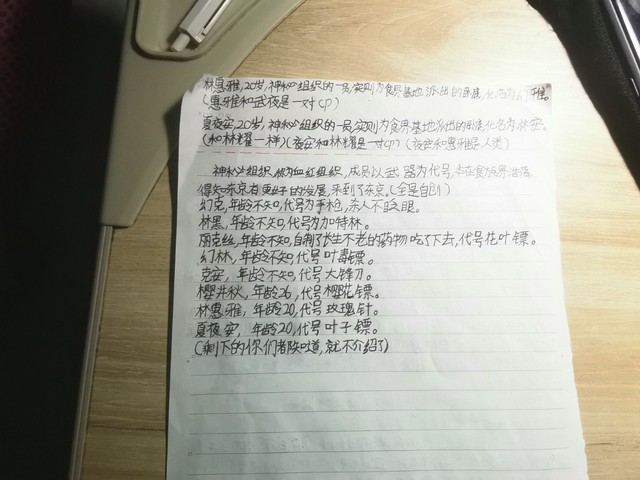 林惠雅,20岁,神秘组织的一员,实则为食界基地派出的卧底,化名为
(惠雅和武夜是一对cp)
夏夜安,20岁,神秘组织的一员,实则为食界基地派出的卧底,化名为林安。
(和林耀一样)(夜安和林耀是一对cp)(夜安和惠雅是人类)
神秘组织,称为血红组织,成员以武器为代号,本在食界
得知东京有更好的发展,来到了东京。(全是自创)
幻克,年龄不知,代号为手枪,杀人不眨眼。
林黑,年龄不知,代号为加特林。
丽克丝,年龄不知,自制了长生不老的药物吃了下去,代号花叶镖。
幻林,年龄不知,代号叶毒镖。
克安,年龄不知,代号大锋刀。
樱井秋,年龄26,代号樱花镖。
林惠雅,年龄20,代号玫瑰针。
夏夜安,年龄20,代号叶子镖。
(剩下的你们都知道,就不介绍了)